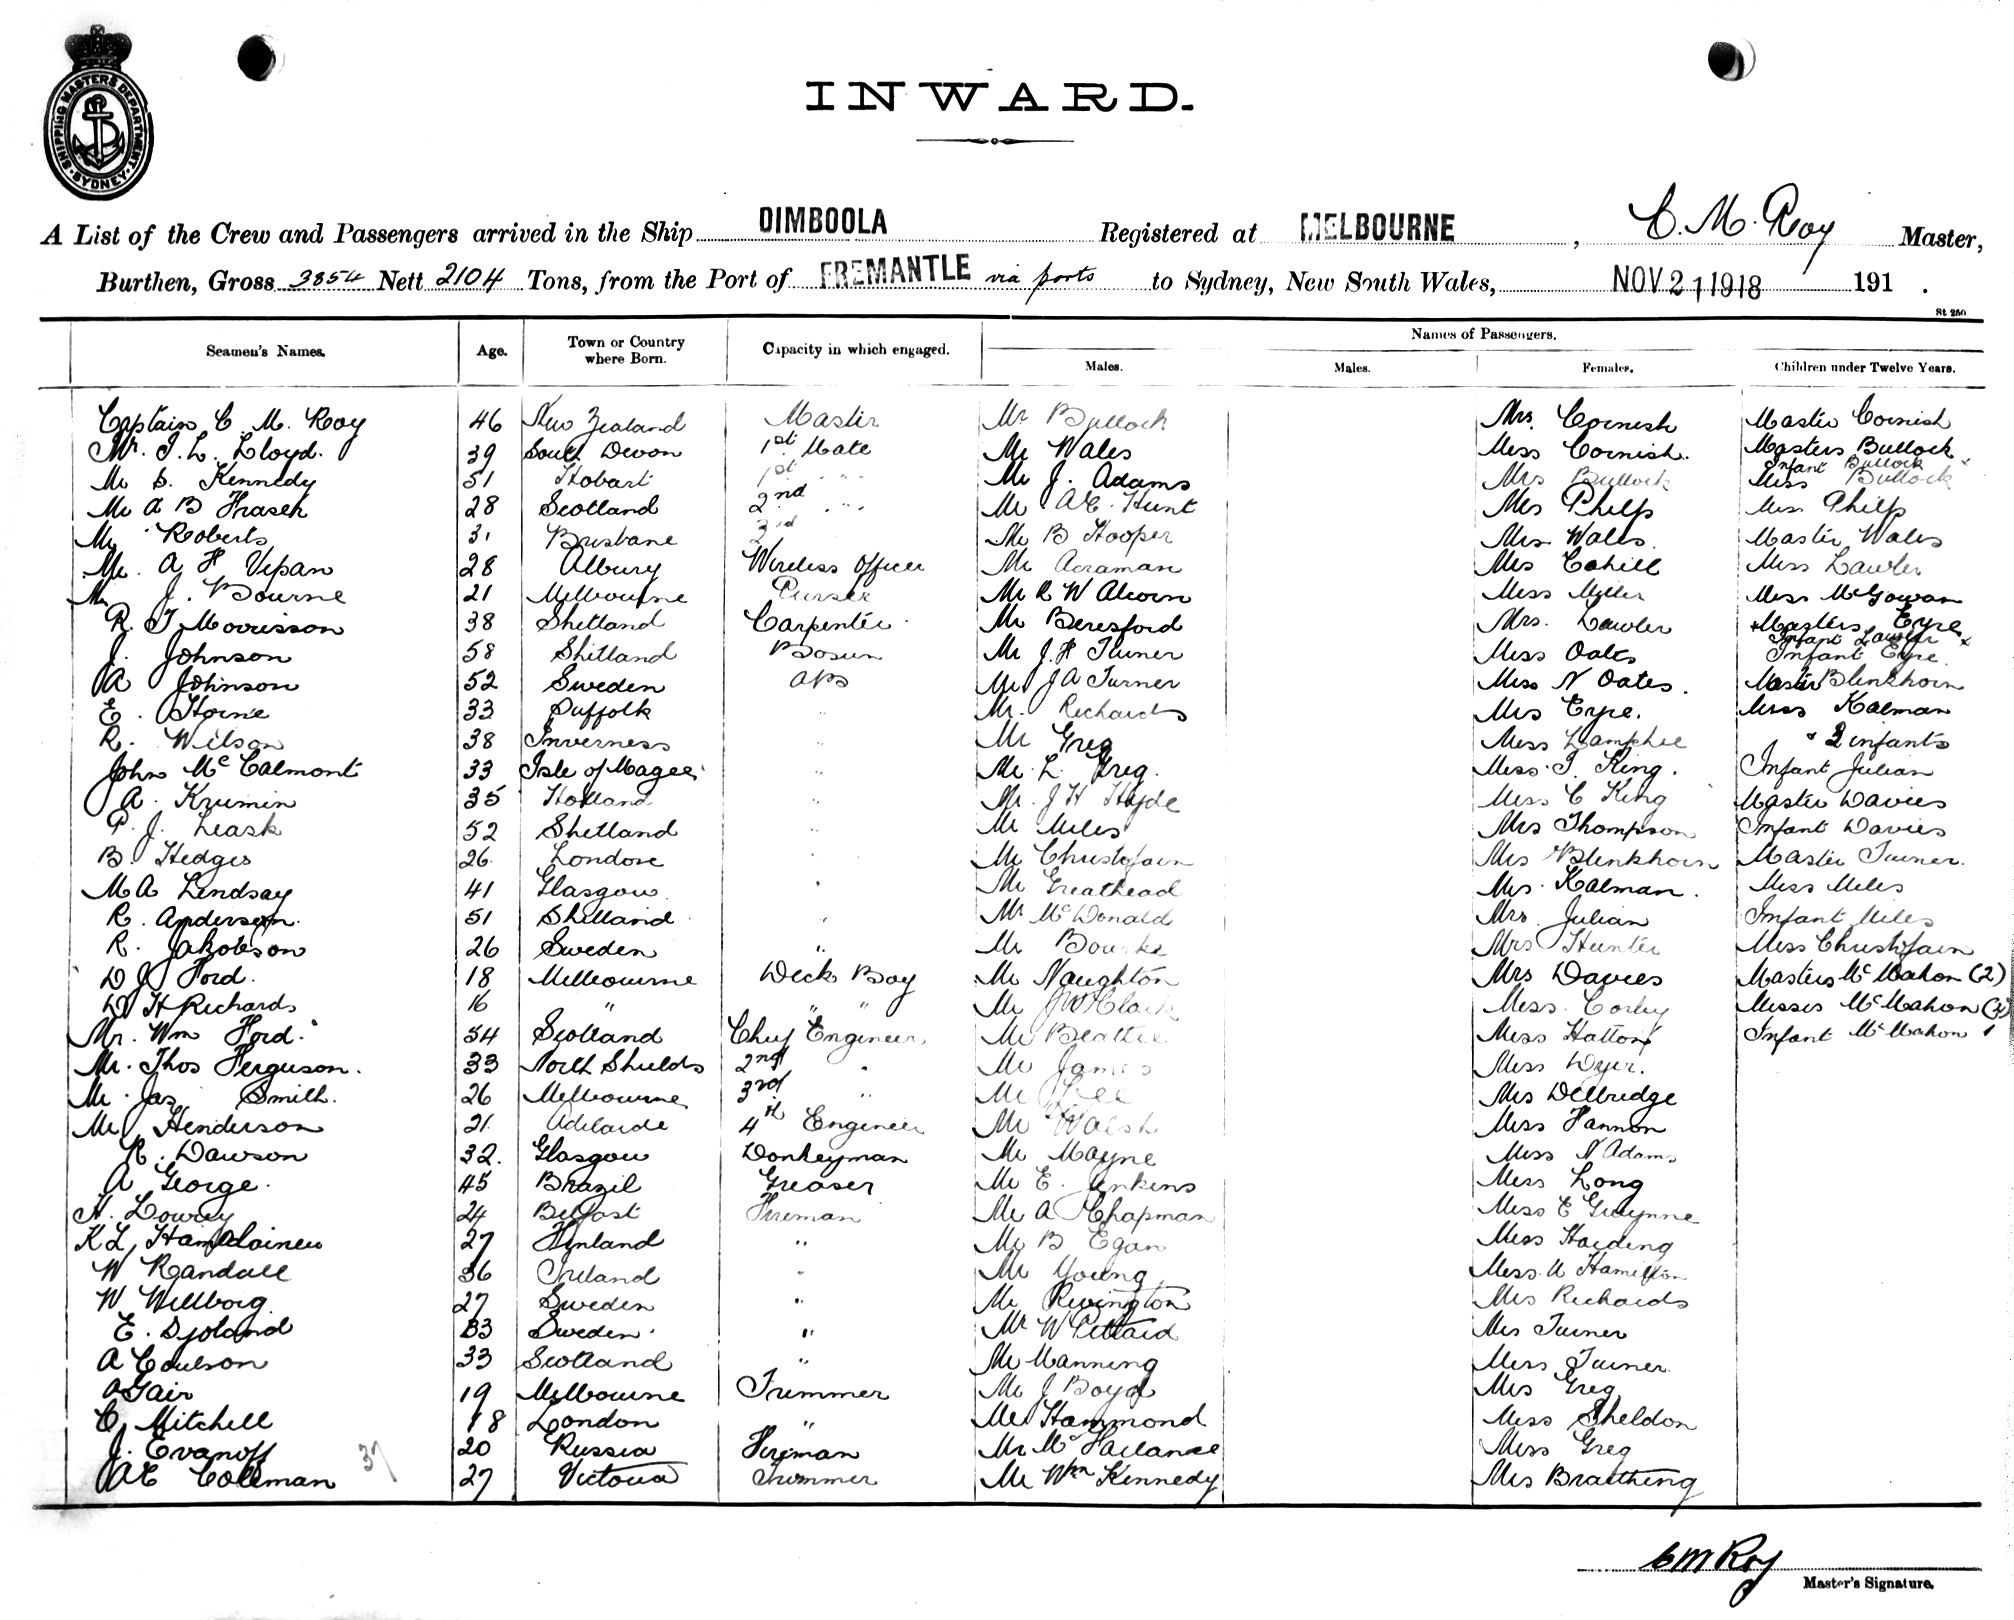 SHIPPING MASTERS DEPARTMENT
SYDNEY
INWARD.
A List of the Crew and Passengers arrived in the Ship DIMBOOLA Registered at MELBOURNE, C. M. Roy Master,
Burthen, Gross 3854 Nett 2104 Tons, from the Port of FREMANTLE via ports to Sydney, New South Wales, NOV 21 1918 191 .
St 250
Names of Passengers.
Seamen's Names. Age. Town or Country where Born. Capacity in which engaged. Males. Males. Females. Children under Twelve Years.
Captain C. M. Roy 46 New Zealand Master Mr Bullock Mrs. Cornish Master Cornish
Mr. J. L. Lloyd. 39 South Devon 1st Mate Mr Wales Miss Cornish. Masters Bullock
Infant Bullock x
Mr S. Kennedy 51 Hobart 1st " " Mr J. Adams Mrs Bullock Miss Bullock
Mr A B Fraser 28 Scotland 2nd " " Mr A.E. Hunt Mrs Philp Miss Philp
Mr Roberts 31 Brisbane 3rd Mr B Hooper Mrs Wales. Master Wales
Mr. A H Vipan 28 Albury Wireless Officer Mr Acraman Mrs Cahill Miss Lawler
Mr J. Bourne 21 Melbourne Purser Mr R W Alcorn Miss Miller Miss McGowan
R. J Morrisson 38 Shetland Carpenter Mr Beresford Mrs. Lawler Masters Eyre
Infant Lawler x
J. Johnson 58 Shetland Bosun Mr J. H Turner Miss Oates Infant Eyre.
A Johnson 52 Sweden ABs Mr J A Turner Miss N Oates. Master Blenkhorn
E. Horne 33 Suffolk " Mr. Richards Mrs Eyre. Miss Kalman
R. Wilson 38 Inverness " Mr Greg Miss Lamphee " 2 infants
John McCalmont 33 Isle of Magee " Mr. L. Greg. Miss J. King. Infant Julian
A. Krumin 35 Holland " Mr. J H Hyde Miss C King Master Davies
P. J. Leask 52 Shetland " Mr Miles Mrs Thompson Infant Davies
B. Hedges 26 London " Mr Christofain Mrs Blenkhorn Master Turner.
M A Lindsay 41 Glasgow " Mr Greathead Mrs. Kalman. Miss Miles
R. Anderson. 51 Shetland " Mr McDonald Mrs. Julian Infant Miles
R. Jakobson 26 Sweden " Mr Bourke Mrs Hunter Miss Christofain
D J Ford. 18 Melbourne Deck Boy Mr Naughton Mrs Davies Masters McMahon (2)
D H Richards 16 " " " Mr J W Clark Miss. Corley Misses McMahon (3)
Mr. Wm Ford. 54 Scotland Chief Engineer Mr Beattie Miss Hatton Infant McMahon 1
Mr. Thos Ferguson. 33 North Shields 2nd " Mr James Miss Dyer.
Mr. Jas Smith. 26 Melbourne 3rd " Mr Lee Mrs Delbridge
Mr Henderson 21 Adelaide 4th Engineer Mr Walsh Miss Hannon
R. Dawson 32. Glasgow Donkeyman Mr Mayne Miss N Adams
A George. 45 Brazil Greaser Mr E. Jenkins Miss Long
H. Lowrey 24 Belfast Fireman Mr A Chapman Miss E Gwynne
K L Hamalainen 27 Finland " Mr B Egan Miss Harding
W Randall 36 Ireland " Mr Young Miss. U Hamilton
W Willborg. 27 Sweden " Mr Rivington Mrs Richards
E. Sjoland 33 Sweden " Mr W Pittard Mrs Turner
A Coulson 33 Scotland " Mr Manning Miss Turner
A Gair 19 Melbourne Trimmer Mr J Boyd Mrs Greg
C. Mitchell 18 London " Mr Hammond Miss Sheldon
J. Evanoff 37 20 Russia Fireman Mr McFarlane Miss Greg
A E Coleman 27 Victoria Trimmer Mr Wm Kennedy Mrs Braithing
C M Roy
Master's Signature.